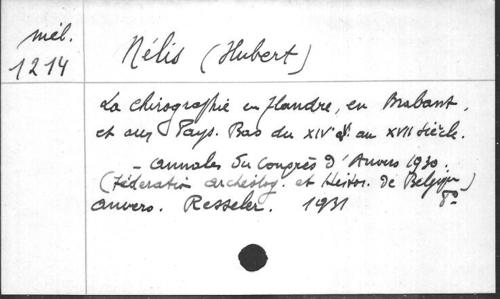 mél.
1214
Nélis (Hubert)
La chirographie en Flandre, en Brabant,
et aux Pays-Bas du XIVe s. au XVII siècle.
- Annales du Congrès d'Anvers 1930.
(Féderation archéolog. et Histor. de Belgique)
Anvers. Resseler. 1931 8°